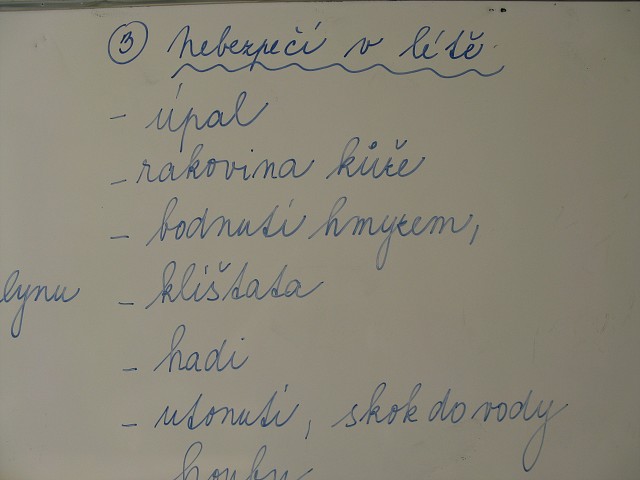 3 nebezpečí v létě
- úpal
- rakovina kůže
- bodnutí hmyzem,
lynu - klíšťata
- hadi
- utonutí, skok do vody
houby